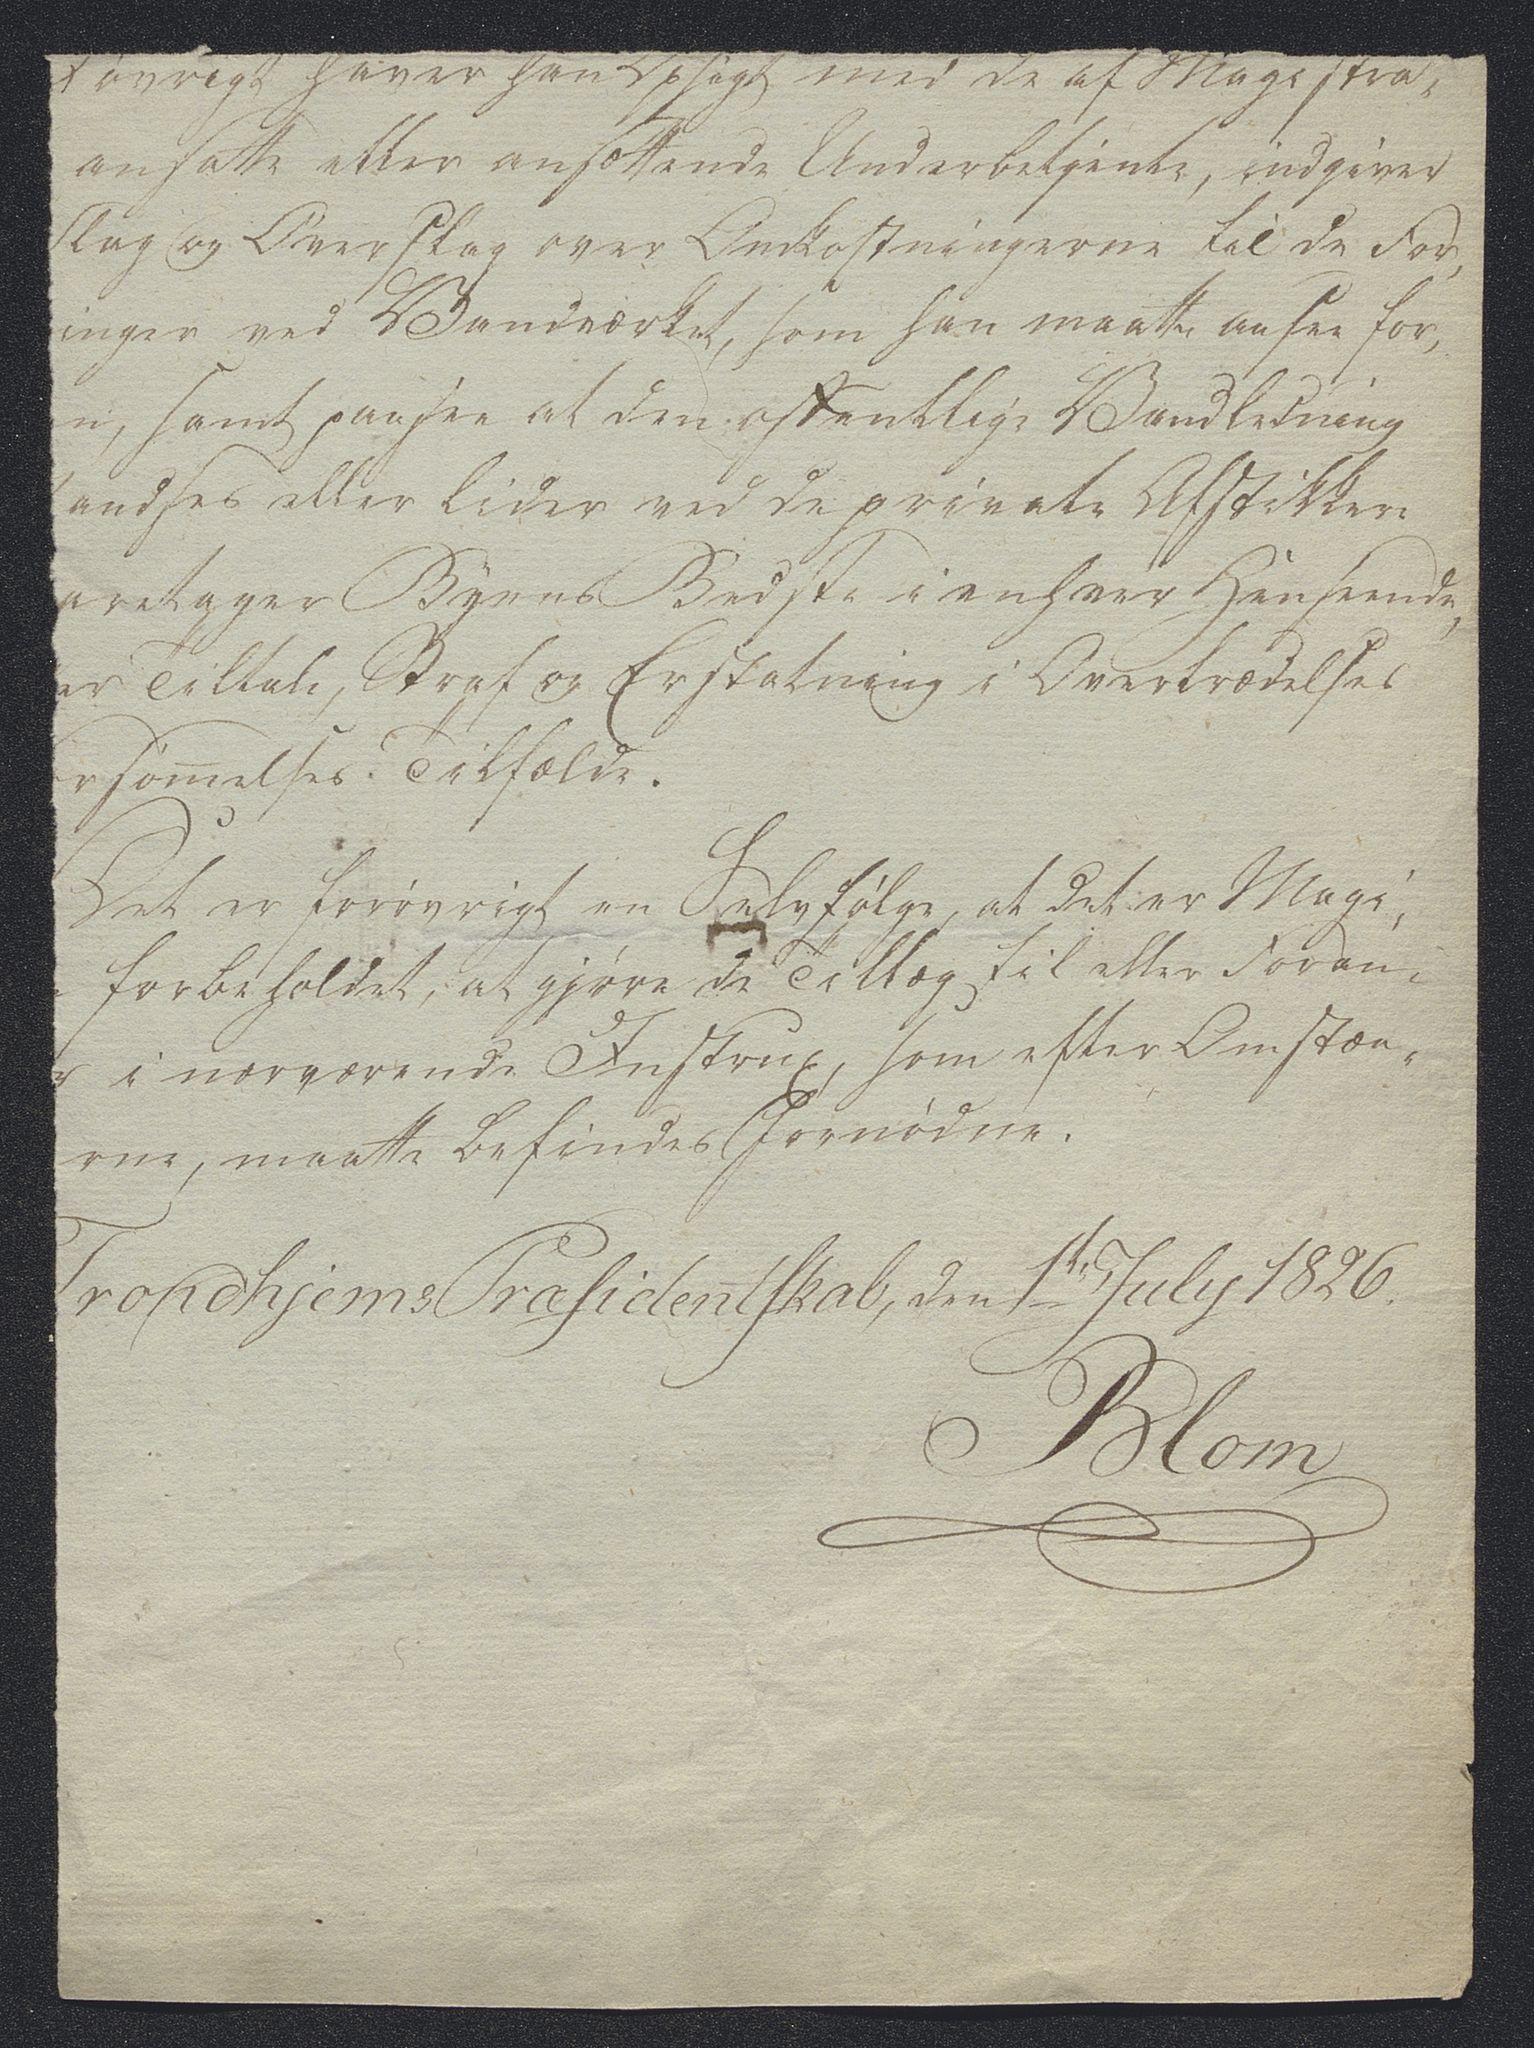 øvrigt haver han Opsigt med de af Magistra,
ansatte eller ansættende Underbetjente, indgiver
slag og Overslag over Omkostningerne til de For,
inger ved Vandværket, som han maatte ansee for,
n, samt paasee at den offentlige Vandledning
andses eller lider ved de private Afstikkere
aretager Byens Bedste i enhver Henseende,
er Tiltale, Straf og Erstatning i Overtrædelses
rsömelses Tilfælde.
Det er forøvrigt en Selvfølge, at det er Magi,
forbeholdet, at gjøre de Tillæg til eller Foran,
r i nærværende Instrux, som efter Omstæn,
rne, maatte befindes fornödne.
Trondhjems Præsidentskab, den 1ste July 1826.
Blom